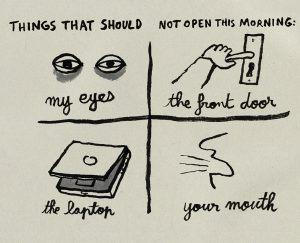 THINGS THAT SHOULD NOT OPEN THIS MORNING:
my eyes
the front door
the laptop
your mouth